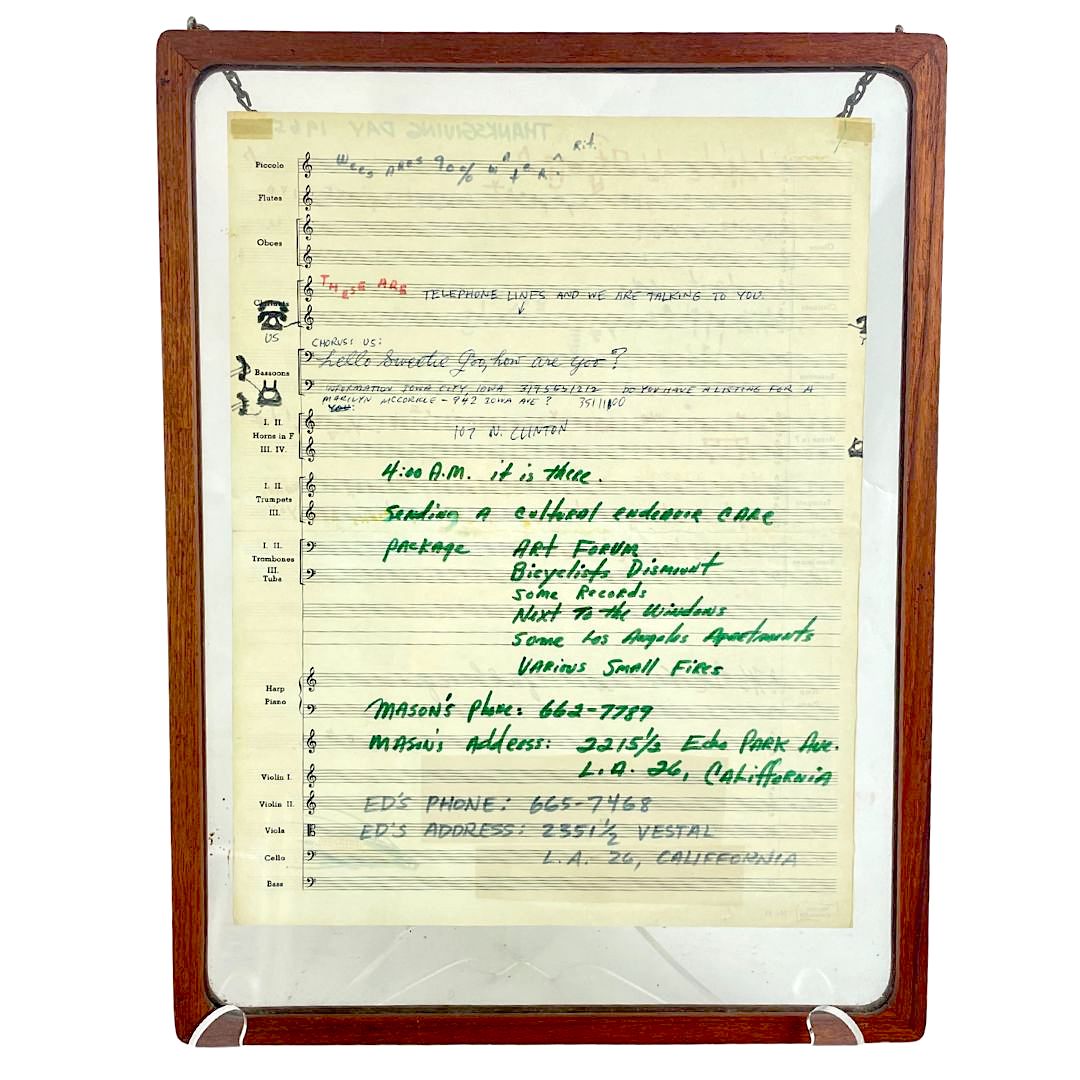 THANKSGIVING DAY 1965
Rit.
Piccolo
90%
Flutes
Oboes
THESE ARE TELEPHONE LINES AND WE ARE TALKING TO YOU.
Clarinets
US
CHORUS: US:
Hello Sweetie Goo, how are yoo?
Bassoons
INFORMATION IOWA CITY, IOWA 3195551212 DO YOU HAVE A LISTING FOR A
MARILYN MCCORKLE - 942 IOWA AVE?
YOU:
I. II.
107 N. CLINTON
Horns in F
III. IV.
4:00 A.M. it is there.
I. II.
Trumpets
III.
Sending A cultural endeavor CARE
I. II.
package ART FORUM
Trombones
Bicyclists Dismount
III.
Tuba
Some Records
Next To the Windows
Some Los Angeles Apartments
VARIOUS Small Fires
Harp
Piano
MASON'S Phone: 662-7789
MASON'S Address: 2215 1/3 Echo PARK Ave.
L.A. 26, CALiffORNIA
Violin I.
Violin II.
ED'S PHONE: 665-7468
Viola
ED'S ADDRESS: 2351 1/2 VESTAL
Cello
L.A. 26, CALIFFORNIA
Bass